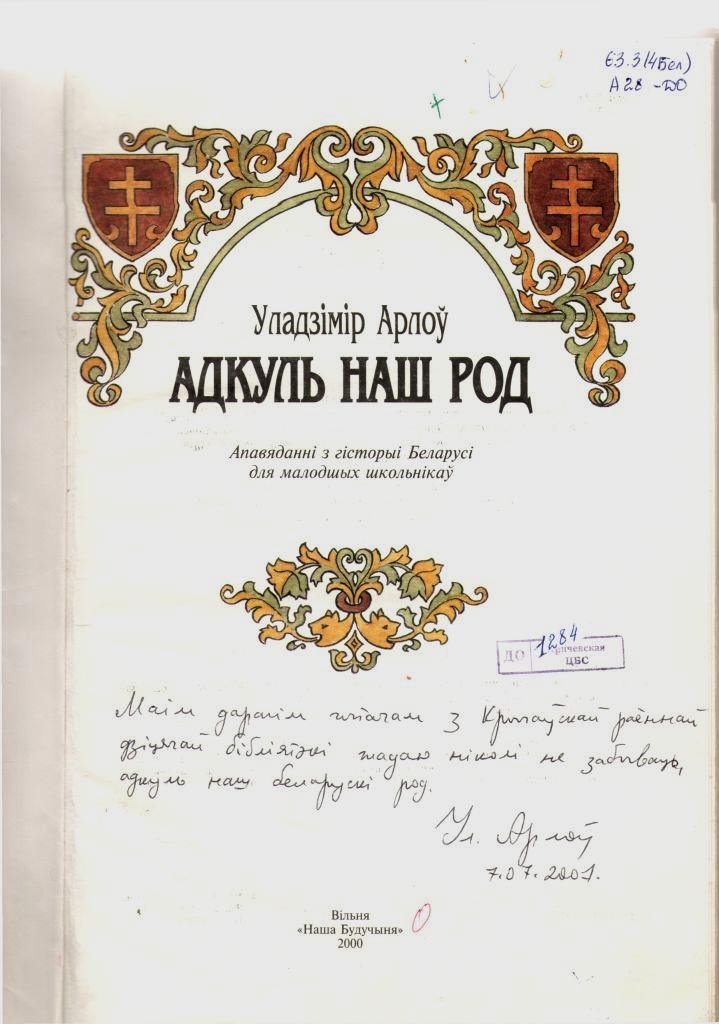 63.3(4Бел)
А 28 -ДО
Уладзімір Арлоў
АДКУЛЬ НАШ РОД
Апавяданні з гісторыі Беларусі
для малодшых школьнікаў
ДО 1284 ричевская
ЦБС
Маім дарагім чытачам з Крычаўскай раённай
дзіцячай бібліятэкі жадаю ніколі не забываць,
адкуль наш беларускі род.
Ул. Арлоў
7.07.2001.
Вільня
«Наша Будучыня»
2000